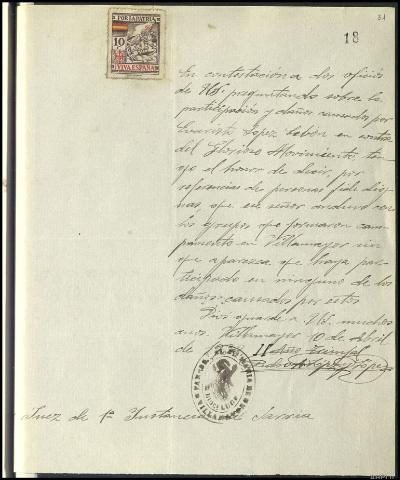 POR LA PATRIA
10
VIVA ESPAÑA
18
31
En contestación a dos oficios
de V.S. preguntando sobre la
participación y daños causados por
Evaristo López Cobón en contra
del Glorioso Movimiento, ten-
go el honor de decir, por
referencias de personas fidedig-
nas, que ese señor anduvo con
los grupos que formaron cam-
pamento en Villamayor sin
que aparezca que haya par-
ticipado en ninguno de los
daños causados por estos
Dios guarde a V.S. muchos
anos. Villamayor 10 de Abril
de II Año Triunfal
Pedro López López
Juez de 1ª Instancia de Sarria